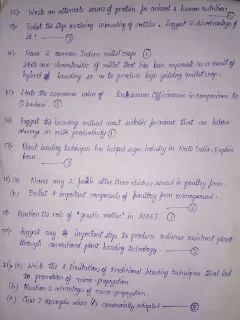 12). Write an alternate source of protein for animal & human nutrition. ①
13). Enlist the steps involving inbreeding of cattles. Suggest 2 disadvantages of it. ③
14). Name 2 common Indian millet crops. ①
State one characteristic of millet that has been improved as a result of hybrid breeding so as to produce high yielding millet crop.
15). State the economic value of Saccharum Officinarum in comparison to S. barberi. ①
16). Suggest the breeding method most suitable for animals that are below average in milk productivity. ①
17). Plant breeding technique has helped sugar industry in North India. Explain how. ③
18. (a) Name any 2 fowls other than chicken reared in poultry farm.
(b) Enlist 4 important components of poultry farm management. ③
19. Mention the role of "genetic mother" in MOET. ①
20. Suggest any 4 important steps to produce a disease resistant plant through conventional plant breeding technology. ②
21. (a) Write the 2 limitations of traditional breeding techniques that led to promotion of micro-propagation.
(b) Mention 2 advantages of micro-propagation.
(c) Give 2 examples where it's commercially adopted ⑤